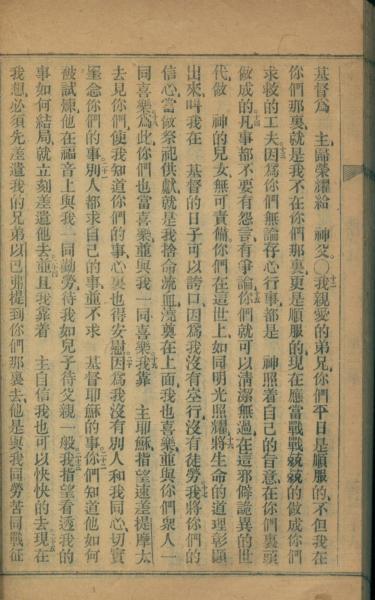 基督爲 主歸榮耀給 神父○十二我親愛的弟兄你們平日是順服的不但我在
你們那裏就是我不在你們那裏更是順服的現在應當戰戰兢兢的做成你們
求救的工夫十三因爲你們無論存心行事都是 神照着自己的旨意在你們裏頭
做成的十四凡事都不要有怨言有爭論十五你們就可以清潔無過在這邪僻詭異的世
代做 神的兒女無可責備你們在這世上如同明光照耀十六將生命的道理彰顯
出來叫我在 基督的日子可以誇口因爲我沒有空行沒有徒勞十七我將你們的
信心當做祭祀供獻就是我捨命流血澆奠在上面我也喜樂並與你們衆人一
同喜樂十八爲此你們也當喜樂並與我一同喜樂十九我靠 主耶穌指望速差提摩太
去見你們使我知道你們的事心裏也得安慰二十因爲我沒有別人和我同心切實
罣念你們的事二十一別人都求自己的事並不求 基督耶穌的事二十二你們知道他如何
被試煉他在福音上與我一同勤勞待我如兒子待父親一般二十三我指望看透我的
事如何結局就立刻差遣他去二十四並且我靠着 主自信我也可以快快的去二十五現在
我想必須先差遣我的兄弟以巴弗提到你們那裏去他是與我同勞苦同戰征